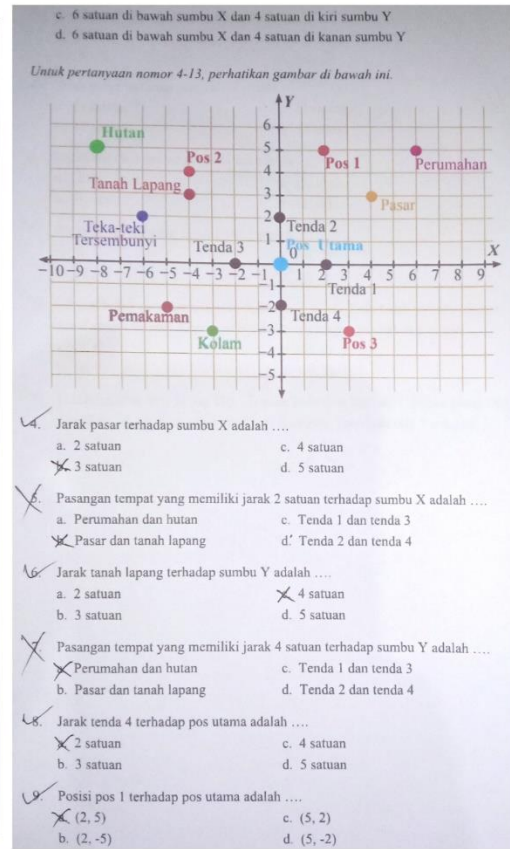 c. 6 satuan di bawah sumbu X dan 4 satuan di kiri sumbu Y
d. 6 satuan di bawah sumbu X dan 4 satuan di kanan sumbu Y
Untuk pertanyaan nomor 4-13, perhatikan gambar di bawah ini.
Y
6
Hutan
5
Pos 2
Pos 1
Perumahan
4
Tanah Lapang
3
Pasar
2
Teka-teki
Tersembunyi
Tenda 2
Tenda 3
1
Pos Utama
0
X
-10 -9 -8 -7 -6 -5 -4 -3 -2 -1 1 2 3 4 5 6 7 8 9
-1
Tenda 1
-2
Pemakaman
Tenda 4
-3
Kolam
Pos 3
-4
-5
4. Jarak pasar terhadap sumbu X adalah ....
a. 2 satuan c. 4 satuan
b. 3 satuan d. 5 satuan
5. Pasangan tempat yang memiliki jarak 2 satuan terhadap sumbu X adalah ....
a. Perumahan dan hutan c. Tenda 1 dan tenda 3
b. Pasar dan tanah lapang d. Tenda 2 dan tenda 4
6. Jarak tanah lapang terhadap sumbu Y adalah ....
a. 2 satuan c. 4 satuan
b. 3 satuan d. 5 satuan
7. Pasangan tempat yang memiliki jarak 4 satuan terhadap sumbu Y adalah ....
a. Perumahan dan hutan c. Tenda 1 dan tenda 3
b. Pasar dan tanah lapang d. Tenda 2 dan tenda 4
8. Jarak tenda 4 terhadap pos utama adalah ....
a. 2 satuan c. 4 satuan
b. 3 satuan d. 5 satuan
9. Posisi pos 1 terhadap pos utama adalah ....
a. (2, 5) c. (5, 2)
b. (2, -5) d. (5, -2)